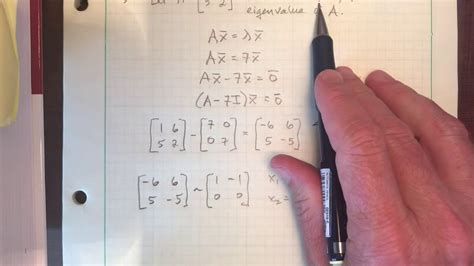 [5 2] eigenvalue A.
Ax̄ = λx̄
Ax̄ = 7x̄
Ax̄ - 7x̄ = 0̄
(A - 7I)x̄ = 0̄
[1 6; 5 2] - [7 0; 0 7] = [-6 6; 5 -5]
[-6 6; 5 -5] ~ [1 -1; 0 0] x₁ x₂ =